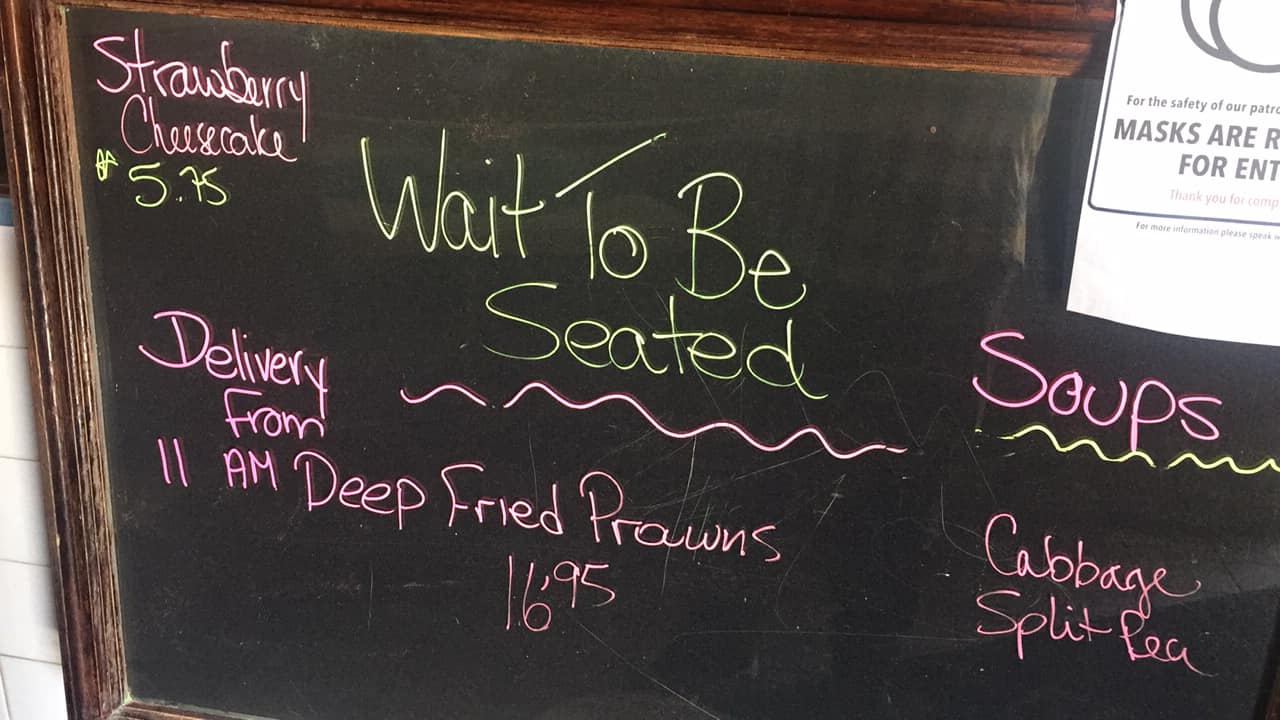 Strawberry
Cheesecake
$5.75
Wait To Be
Seated
Delivery
From
11 AM
Deep Fried Prawns
16.95
Soups
Cabbage
Split Pea
For the safety of our
MASKS ARE
FOR
Thank you for
For more information please speak